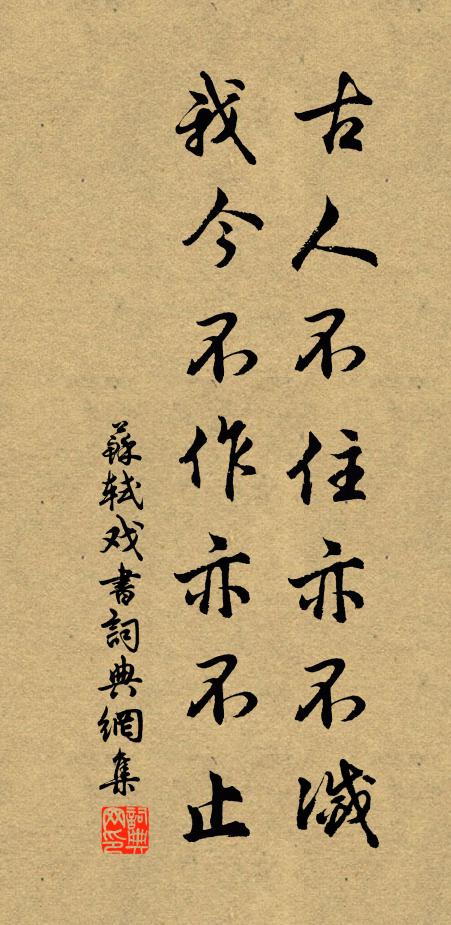 古人不住亦不滅
我今不作亦不止
蘇轼戏書詞典網集
詞典
网印